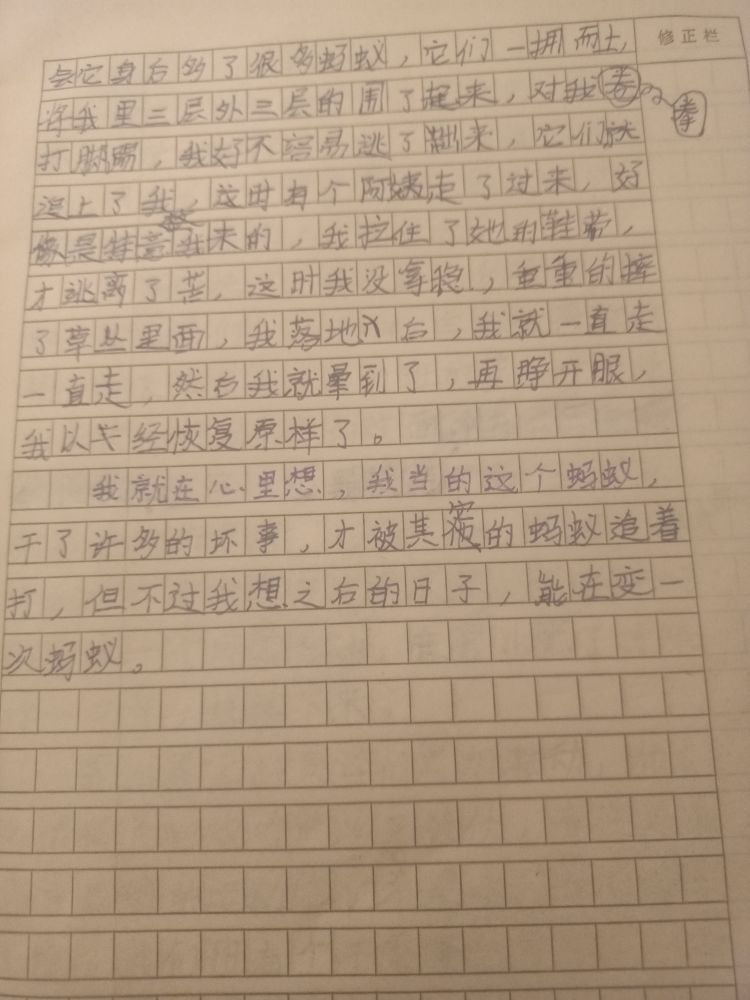 会它身后多了很多蚂蚁，它们一拥而上，
修正栏
将我里三层外三层的围了起来，对我卷
拳
打脚踢，我好不容易逃了出来，它们就
追上了我，这时有个阿姨走了过来，好
像是特意救我来的，我拉住了她的鞋带，
才逃离了苦，这时我没拿稳，重重的摔
了草丛里面，我落地以后，我就一直走
一直走，然后我就晕到了，再睁开眼，
我以经恢复原样了。
我就在心里想，我当的这个蚂蚁，
干了许多的坏事，才被其的蚂蚁追着
打，但不过我想之后的日子，能在变一
次蚂蚁。